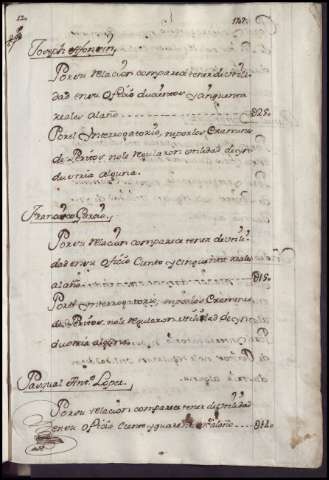 Joseph
Por su relacion comparece tener de utili-
dad en su oficio ducientos y cinquenta
reales al año
Por el Ynterrogatorio, ni por los Examenes
de Peritos, no le regularon utilidad de yn-
dustria alguna.
Francisco Garcia,
Por su relacion comparece tener de utili-
dad en su oficio Ciento y cinquenta reales
al año
Por el Ynterrogatorio, ni por los Examenes
de Peritos, no le regularon utilidad de yn-
dustria alguna.
Pasqual Antº. Lopez
Por su relacion comparece tener de utilidad
en su oficio Ciento y quarenta al año